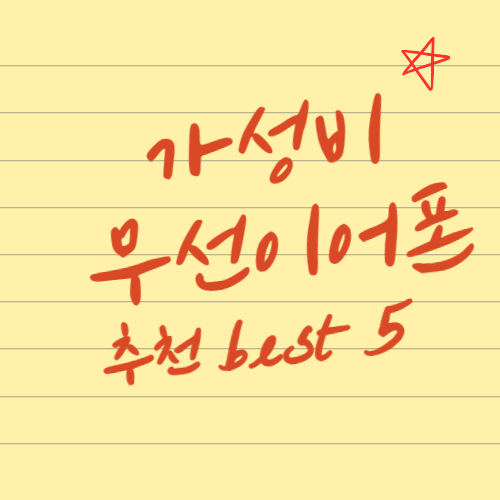 가성비
무선이어폰
추천 best 5